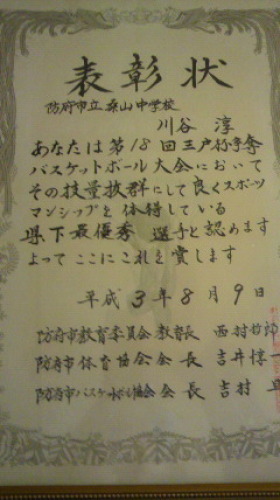 表彰状
防府市立桑山中学校
川谷 淳
あなたは第18回三戸杯争奪
バスケットボール大会において
その技量抜群にして良くスポーツ
マンシップを体得している
県下最優秀選手と認めます
よってここにこれを賞します
平成3年8月9日
防府市教育委員会教育長 西村
防府市体育協会会長 吉井惇一
防府市バスケットボール協会会長 吉村